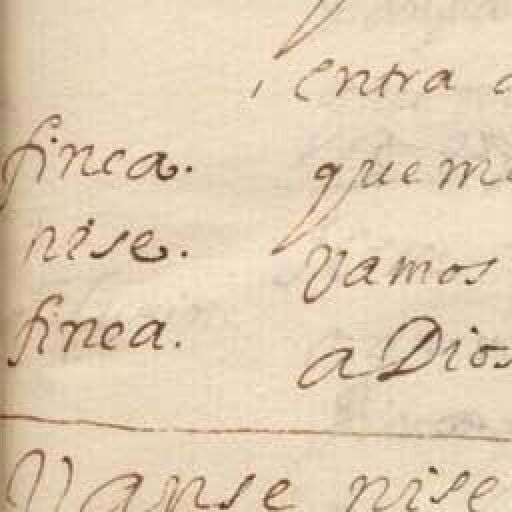 entra
finea. que me
nise. vamos
finea. a Dios
Vanse nise